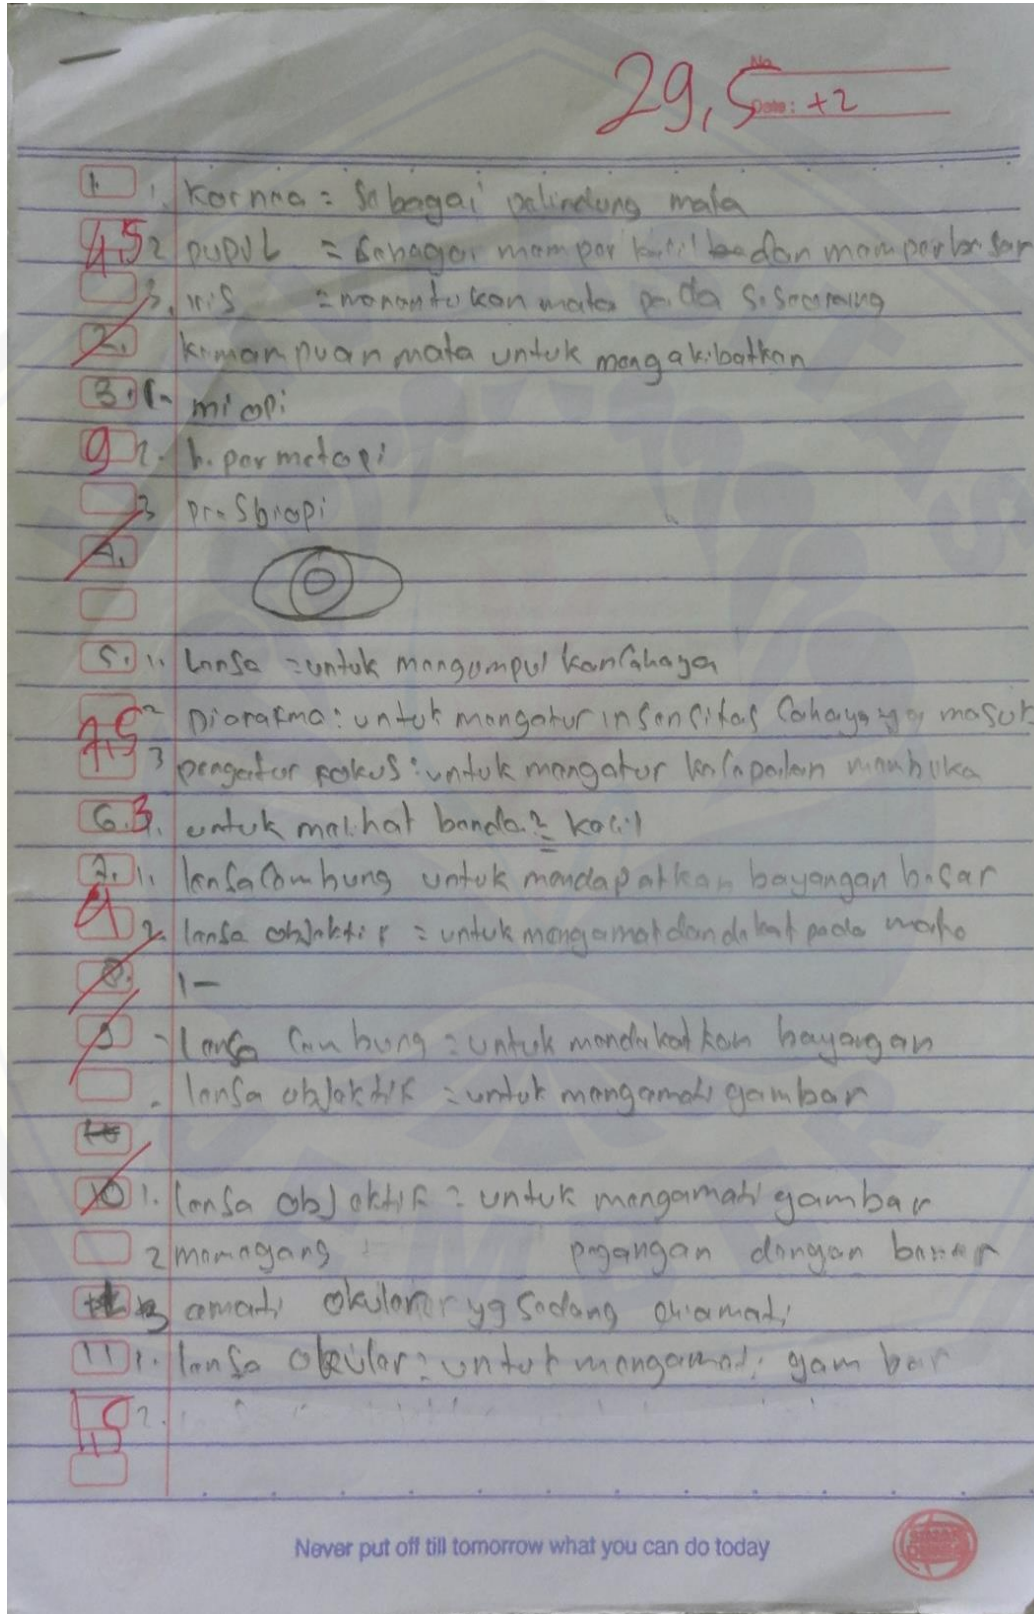 29,5
No
Date: +2
1. 1. Kornea = Sebagai pelindung mata
4,5 2 pupil = Sebagai memper kecil dan memperbesar
3. iris = menentukan mata pada seseorang
2. kemampuan mata untuk mengakibatkan
3. 1. miopi
9 2. hipermetopi
3 presbiopi
4.
5. 1. Lensa = untuk mengumpulkan Cahaya
7,5 2 Diarakma : untuk mengatur insensitas Cahaya yg masuk
3 pengatur fokus : untuk mengatur membuka
6. 3 1. untuk melihat benda2 kecil
7. 1. lensa Cembung untuk mendapatkan bayangan besar
2. lensa objektif = untuk mengamat dandekat pada
8. 1 -
9 - lensa Cembung = untuk mendekatkan bayangan
- lensa objektif = untuk mengamati gambar
10 1. lensa objektif = untuk mengamati gambar
2 memegang pegangan dengan
3 amati yg sedang diamati
11 1. lensa okuler = untuk mengamati gambar
1,5 2.
Never put off till tomorrow what you can do today